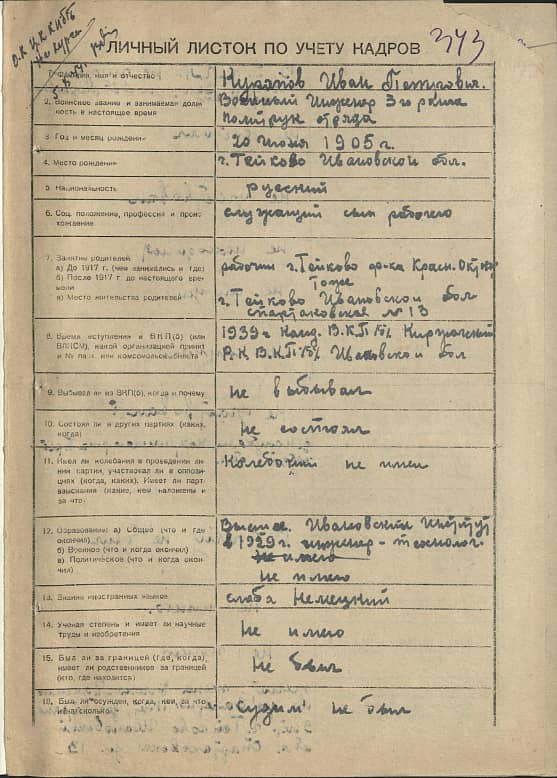 О.К. Ц.К. К.П.б.Б
ЛИЧНЫЙ ЛИСТОК ПО УЧЕТУ КАДРОВ
373
1. Фамилия, имя и отчество
Иван Петрович.
2. Воинское звание и занимаемая долж
ность в настоящее время
Военный Инженер 3го ранга
политрук отряда
3. Год и месяц рождения
1905 г.
4. Место рождения
г. Тейково Ивановской обл.
5. Национальность
русский
6. Соц. положение, профессия и проис
хождение
служащий сын рабочего
7. Занятие родителей
а) До 1917 г. (чем занимались и где)
б) После 1917 г. до настоящего вре
мени
в) Место жительства родителей
рабочий г. Тейково ф-ка Красн. Октябр
Тоже
г. Тейково Ивановской обл
спартаковская № 13
8. Время вступления в ВКП(б) (или
ВЛКСМ), какой организацией принят
и № парт. или комсомольск. билета
1939 г Канд. В.К.П/б/ Киржачский
Р.К В.К.П/б/ Ивановской обл
9. Выбывал ли из ВКП(б), когда и почему
не выбывал
10. Состоял ли в других партиях (каких,
когда)
не состоял
11. Имел ли колебания в проведении ли
нии партии, участвовал ли в оппози
циях (когда, каких). Имеет ли парт
взыскания (какие, кем наложены и
за что)
Колебаний не имел
12. Образование а) Общее (что и где
окончил)
б) Военное (что и когда окончил)
в) Политическое (что и когда окон
чил)
Высшее. Ивановский Институт
в 1929 г. инженер - технолог.
Не имею
не имею
13. Знание иностранных языков
слабо Немецкий
14. Ученая степень и имеет ли научные
труды и изобретения
Не имею
15. Был ли за границей (где, когда),
имеет ли родственников за границей
(кто, где находится)
Не был
16. Был ли осужден, когда, кем, за что
и на сколько
Судим не был